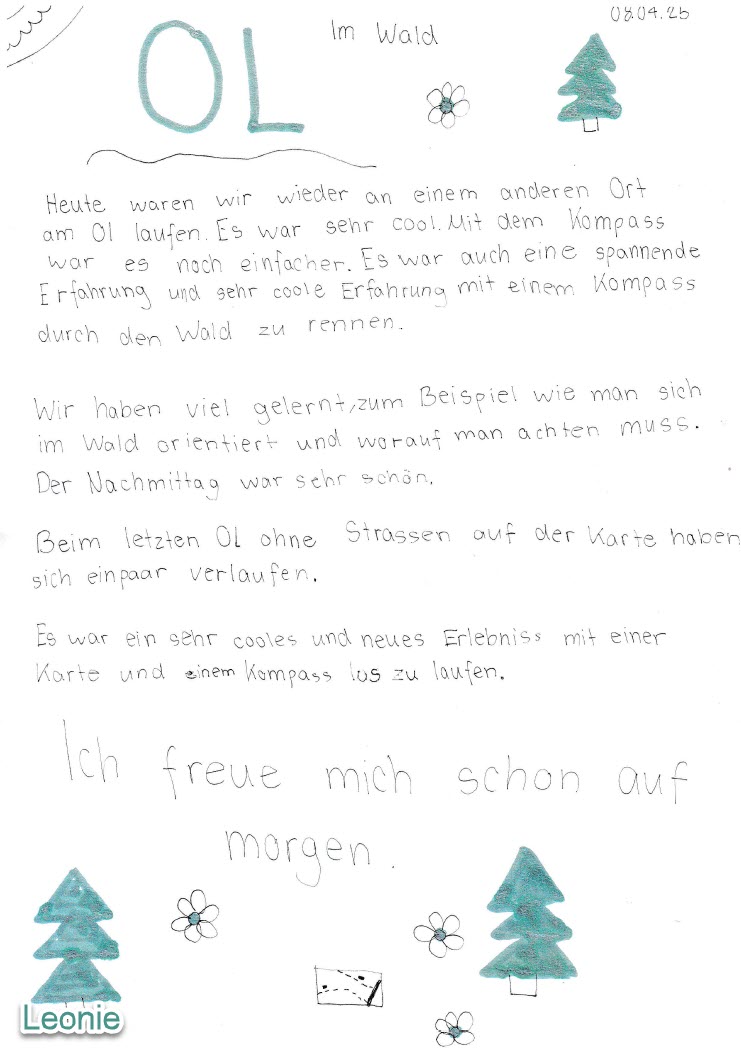 08.04.25
OL Im Wald
Heute waren wir wieder an einem anderen Ort
am Ol laufen. Es war sehr cool. Mit dem Kompass
war es noch einfacher. Es war auch eine spannende
Erfahrung und sehr coole Erfahrung mit einem Kompass
durch den Wald zu rennen.
Wir haben viel gelernt, zum Beispiel wie man sich
im Wald orientiert und worauf man achten muss.
Der Nachmittag war sehr schön.
Beim letzten OL ohne Strassen auf der Karte haben
sich einpaar verlaufen.
Es war ein sehr cooles und neues Erlebniss mit einer
Karte und einem Kompass los zu laufen.
Ich freue mich schon auf
morgen.
Leonie